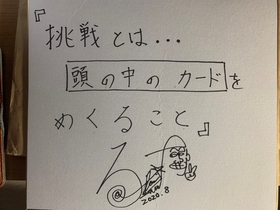 『
挑戦とは...
頭の中のカードを
めくること
』
2020.8